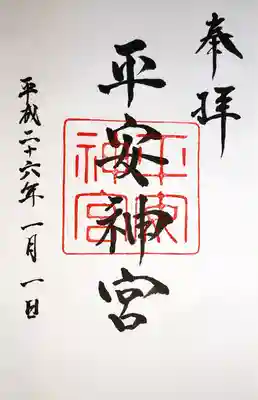 奉拝
平安神宮
平安神宮
平成二十六年一月一日